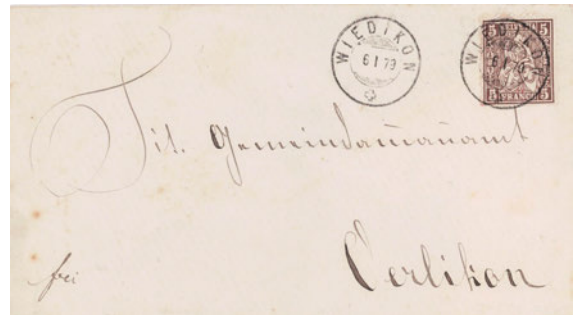 WIEDIKON
6 I 79
WIEDIKON
6 I 79
5 5
5 FRANCO 5
Tit. Gemeindam̄an̄amt
frei
Oerlikon